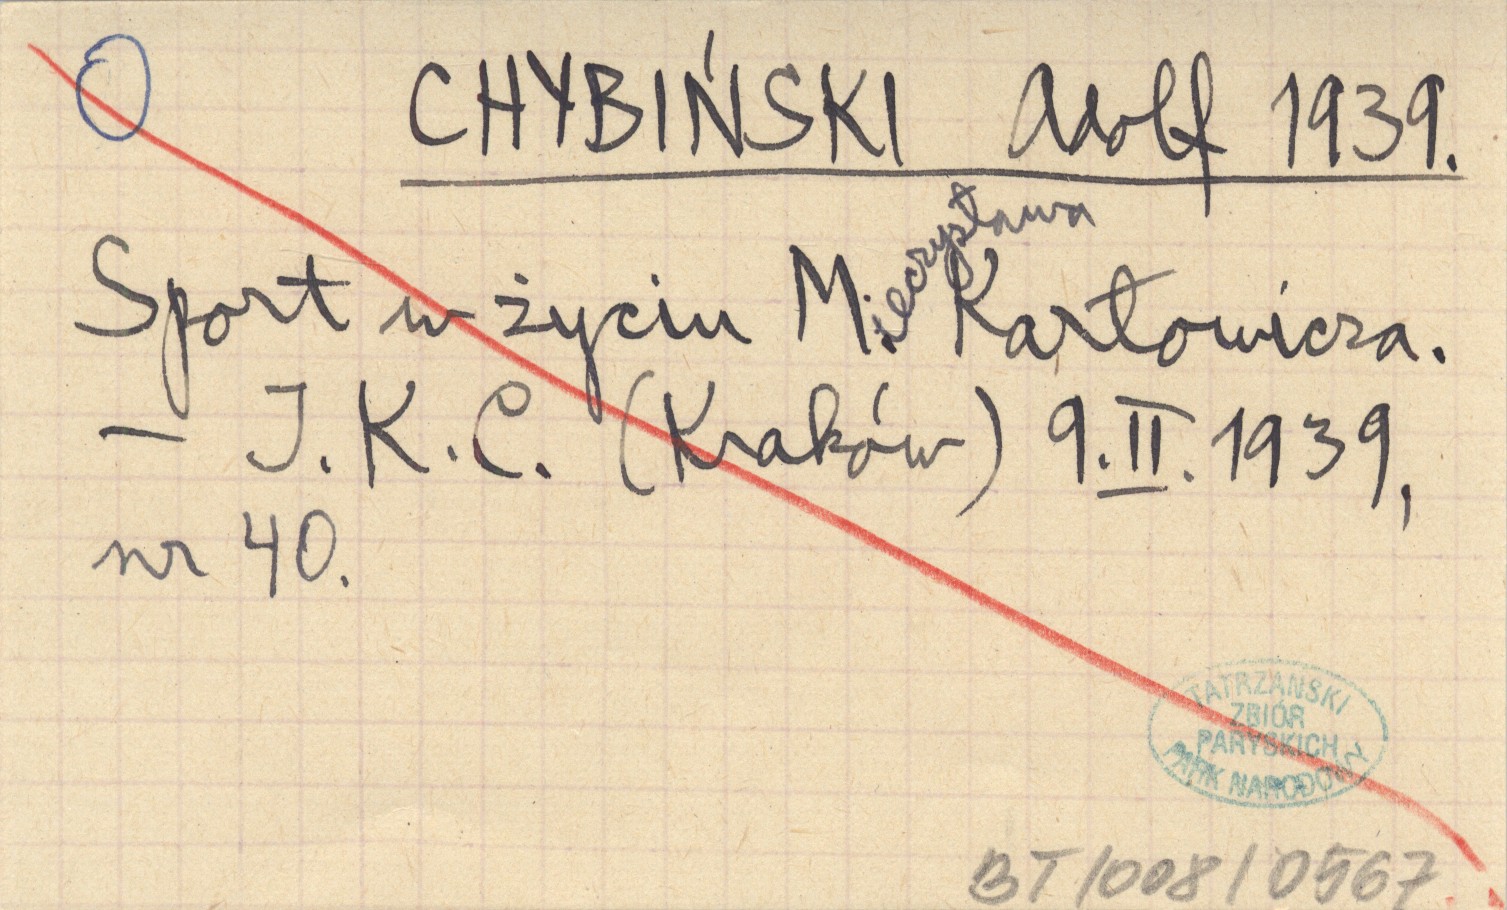 CHYBIŃSKI Adolf 1939.
Sport w życiu Mieczysława Karłowicza.
— I.K.C. (Kraków) 9.II.1939,
nr 40.
TATRZAŃSKI
ZBIÓR
PARYSKICH
PARK NARODOWY
BT/008/0567